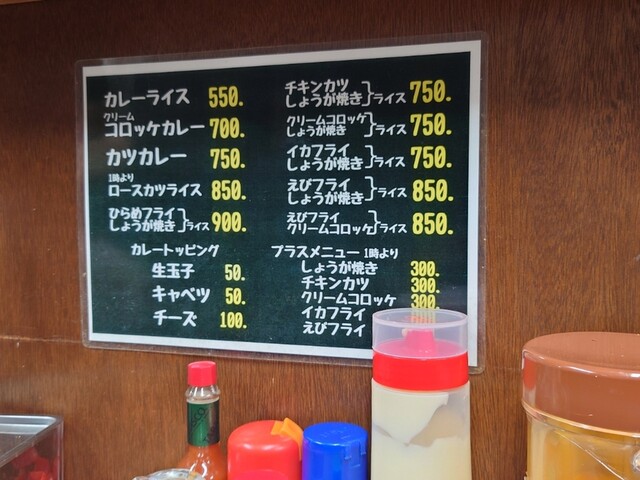 カレーライス 550.
クリーム
コロッケカレー 700.
カツカレー 750.
1時より
ロースカツライス 850.
ひらめフライ
しょうが焼き}ライス 900.
カレートッピング
生玉子 50.
キャベツ 50.
チーズ 100.
チキンカツ
しょうが焼き}ライス 750.
クリームコロッケ
しょうが焼き}ライス 750.
イカフライ
しょうが焼き}ライス 750.
えびフライ
しょうが焼き}ライス 850.
えびフライ
クリームコロッケ}ライス 850.
プラスメニュー 1時より
しょうが焼き 300.
チキンカツ 300.
クリームコロッケ 300.
イカフライ
えびフライ